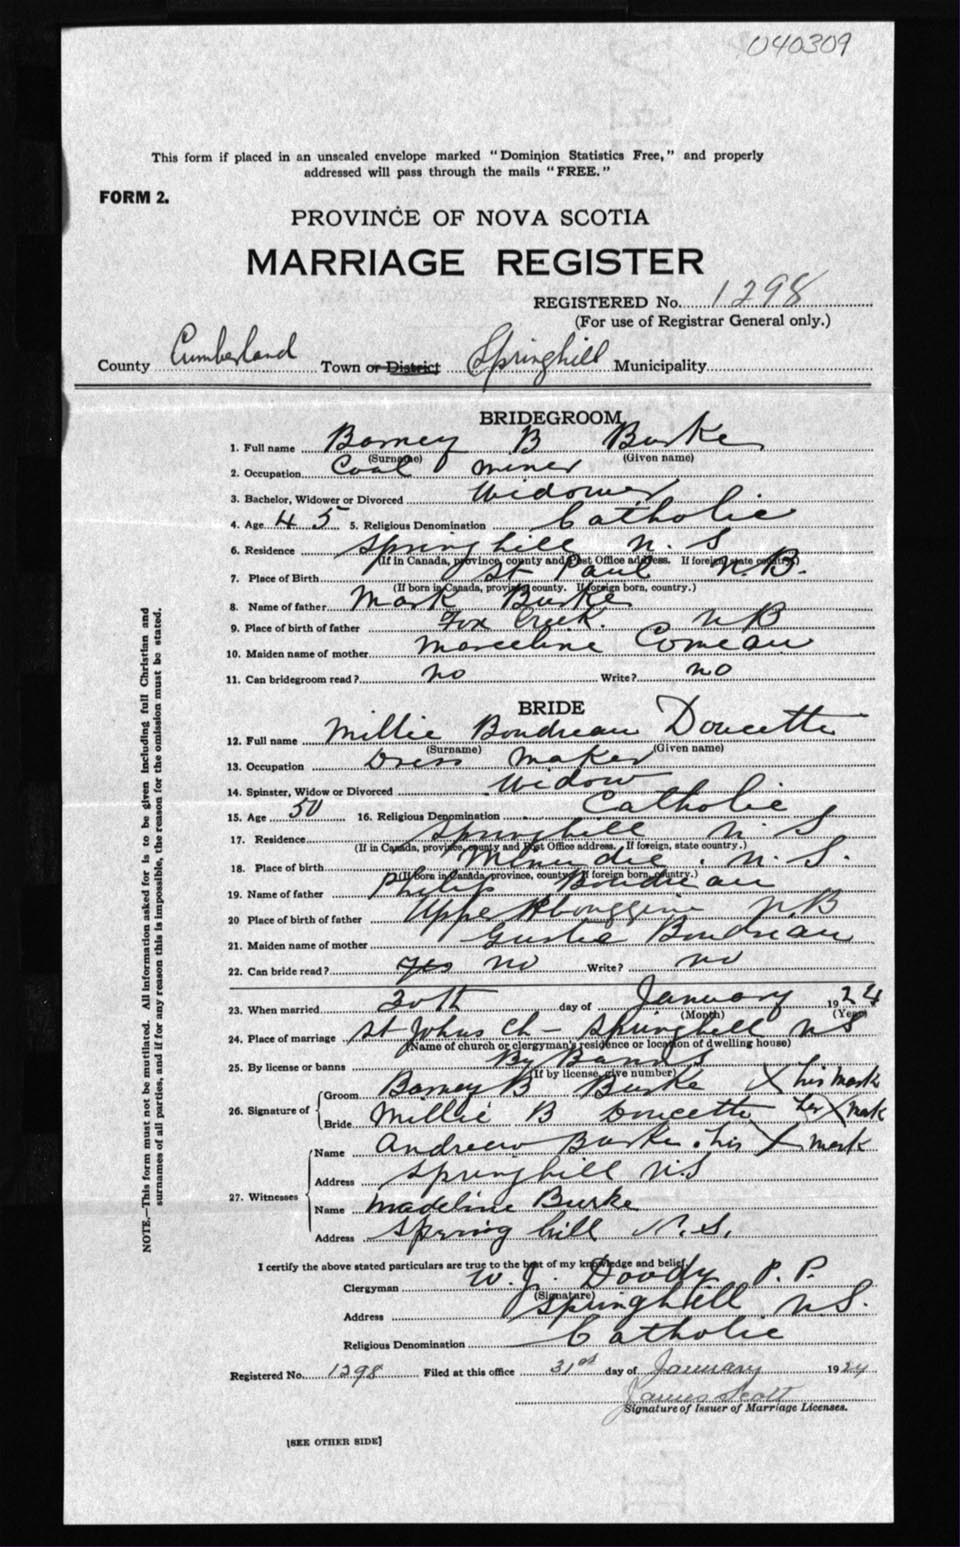 040309
This form if placed in an unsealed envelope marked "Dominion Statistics Free," and properly
addressed will pass through the mails "FREE."
FORM 2.
PROVINCE OF NOVA SCOTIA
MARRIAGE REGISTER
REGISTERED No. 1298
(For use of Registrar General only.)
County Cumberland Town or District Springhill Municipality
BRIDEGROOM
1. Full name Barney B Burke
(Surname) (Given name)
2. Occupation Coal miner
3. Bachelor, Widower or Divorced Widower
4. Age 45 5. Religious Denomination Catholic
6. Residence Springhill N. S
(If in Canada, province, county and Post Office address. If foreign, state country.)
7. Place of Birth St Paul N.B.
(If born in Canada, province, county. If foreign born, country.)
8. Name of father Mark Burke
9. Place of birth of father Fox Creek. N B
10. Maiden name of mother Marceline Comeau
11. Can bridegroom read? no Write? no
BRIDE
12. Full name Millie Boudreau Doucette
(Surname) (Given name)
13. Occupation Dress maker
14. Spinster, Widow or Divorced Widow
15. Age 50 16. Religious Denomination Catholic
17. Residence Springhill N S
(If in Canada, province, county and Post Office address. If foreign, state country.)
18. Place of birth Menudie. N. S.
(If born in Canada, province, county. If foreign born, country.)
19. Name of father Philip Boudreau
20 Place of birth of father N.B
21. Maiden name of mother Gustie Boudreau
22. Can bride read? yes no Write? no
23. When married 30th day of January 1924
(Month) (Year)
24. Place of marriage St Johns Ch - Springhill N S
(Name of church or clergyman's residence or location of dwelling house)
25. By license or banns By Banns
(If by license, give number)
26. Signature of Groom Barney B Burke X his mark
Bride Millie B Doucette her X mark
27. Witnesses Name Andrew Burke. his X mark
Address Springhill NS
Name Madeline Burke
Address Spring hill N.S.
I certify the above stated particulars are true to the best of my knowledge and belief.
Clergyman W. J. Doody P. P.
(Signature)
Address Springhill N S.
Religious Denomination Catholic
Registered No. 1298 Filed at this office 31st day of January 1924
James Scott
Signature of Issuer of Marriage Licenses.
[SEE OTHER SIDE]
NOTE.—This form must not be mutilated. All information asked for is to be given including full Christian and
surnames of all parties, and if for any reason this is impossible, the reason for the omission must be stated.